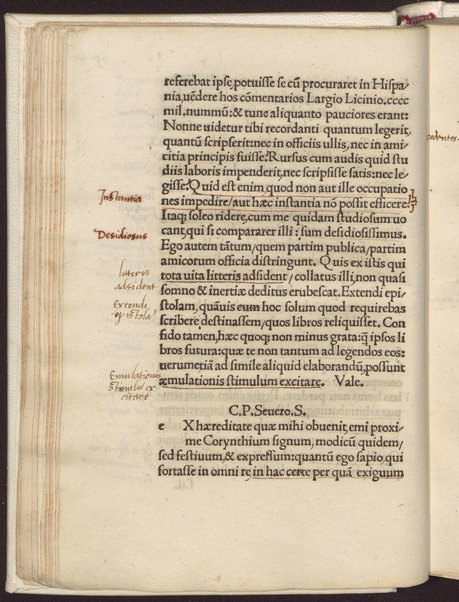 referebat ipse, potuisse se cū procuraret in Hispa
nia, uēdere hos cōmentarios Largio Licinio. cccc
mil. nummū: & tunc aliquanto pauciores erant:
Nonne uidetur tibi recordanti quantum legerit,
quantū scripserit: nec in officiis ullis, nec in ami
citia principis fuisse: Rursus cum audis quid stu
diis laboris impenderit, nec scripsisse satis: nec le
gisse: Quid est enim, quod non aut ille occupatio
Instantia
nes impedire, aut hæc instantia nō possit efficere:
Itaq; soleo ridere, cum me quidam studiosum uo
cant, qui si compararer illi: sum desidiosissimus.
Desidiosus
Ego autem tātum, quem partim publica, partim
amicorum officia distringunt. Quis ex istis qui
tota uita litteris adsident, collatus illi, non quasi
lateris
adsident
somno & inertiæ deditus erubescat. Extendi epi
stolam, quāuis eum hoc solum quod requirebas
Extendi
epistola
scribere destinassem, quos libros reliquisset. Con
fido tamen, hæc quoq; non minus grata: q̄ ipsos li
bros futura: quæ te non tantum ad legendos eos:
uerumetiā ad simile aliquid elaborandū, possunt
æmulationis stimulum excitare. Vale.
Emulationis
stimulū ex
citare
C.P. Seuero. S.
e XHæreditate quæ mihi obuenit, emi proxi
me Corynthium signum, modicū quidem,
sed festiuum, & expressum: quantū ego sapio, qui
fortasse in omni re, in hac certe per quā exiguum